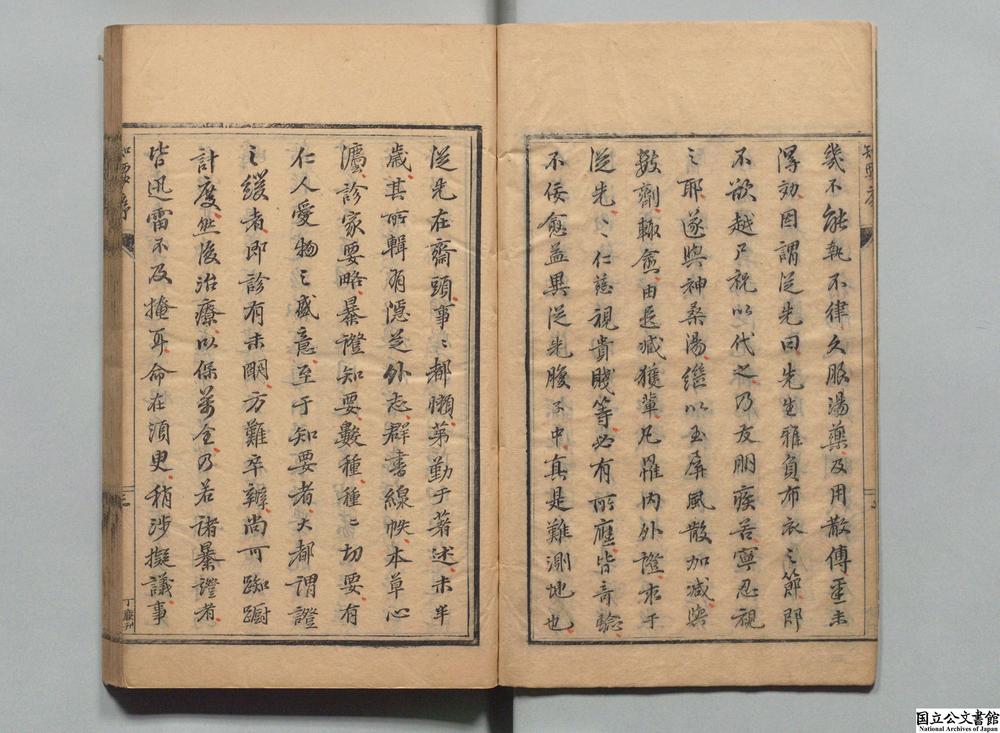 幾不能執不律久服湯藥及用散傅垩未
得効因謂從先曰先生雅負布衣之節即
不欲越尸祝以代之乃友朋疾苦寧忍視
之耶遂與神桑湯繼以玉屏風散加減與
數劑輒愈由是臧獲輩凡罹內外證求于
從先從先仁慈視貴賤等必有所應皆奇驗
不佞愈益異從先腹不中真是難測地也
從先在齋頭事事都懶第勤于著述未半
歲其所輯有隱芝外志群書線帙本草心
灋診家要略暴證知要數種種種切要有
仁人愛物之盛意至于知要者大都謂證
之緩者即診有未明方難卒辦尚可踟躕
計度然後治療以保萬全乃若諸暴證者
皆迅雷不及掩耳命在須臾稍涉擬議事
知要序
国立公文書館
National Archives of Japan